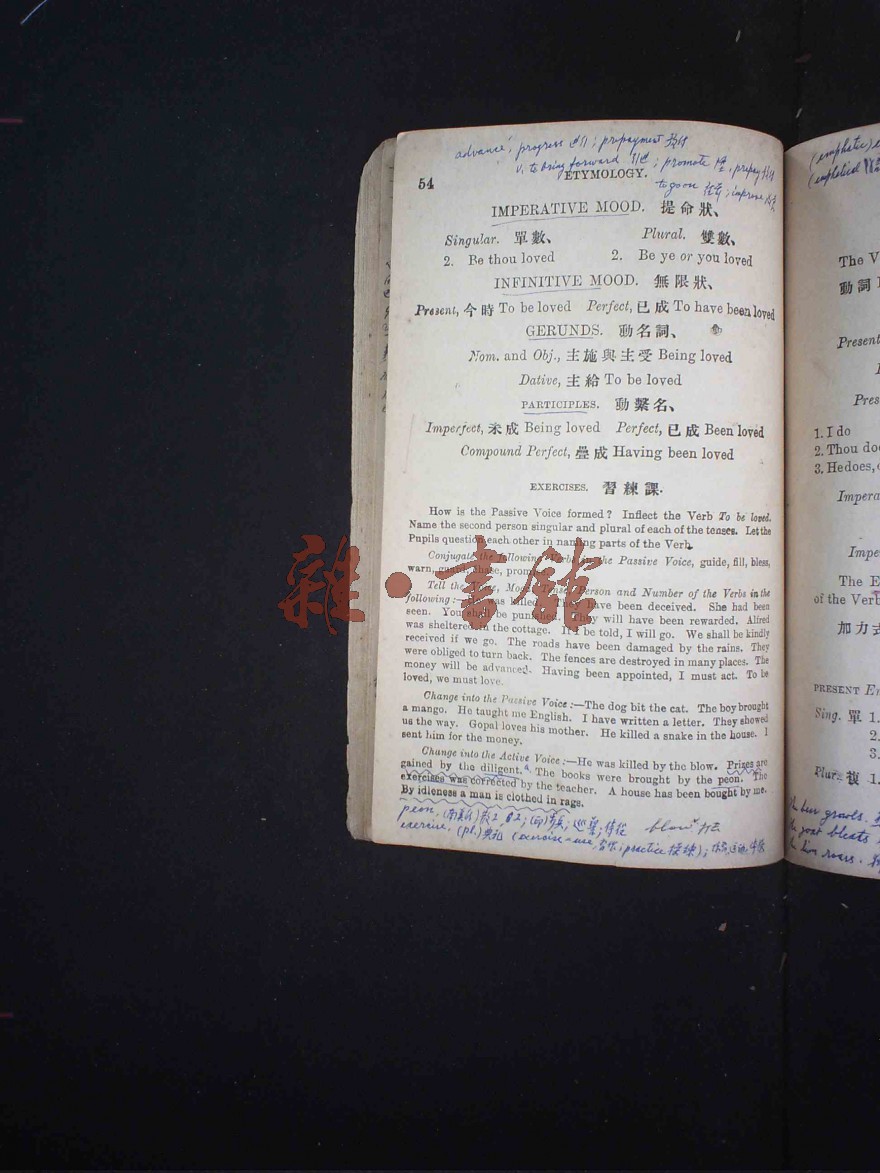 advance, progress ; prepayment
v. to bring forward ; promote , prepay
54
ETYMOLOGY.
to go on ; improve
IMPERATIVE MOOD. 提命狀、
Singular. 單數、 Plural. 雙數、
2. Be thou loved 2. Be ye or you loved
INFINITIVE MOOD. 無限狀、
Present, 今時 To be loved Perfect, 已成 To have been loved
GERUNDS. 動名詞、
Nom. and Obj., 主施與主受 Being loved
Dative, 主給 To be loved
PARTICIPLES. 動繫名、
Imperfect, 未成 Being loved Perfect, 已成 Been loved
Compound Perfect, 疊成 Having been loved
EXERCISES. 習練課.
How is the Passive Voice formed? Inflect the Verb To be loved.
Name the second person singular and plural of each of the tenses. Let the
Pupils question each other in naming parts of the Verb.
Conjugate the following Verbs in the Passive Voice, guide, fill, bless,
warn, guard, chase,
Tell the Voice, Mood, Tense, Person and Number of the Verbs in the
following:— was killed. They have been deceived. She had been
seen. You shall be punished. They will have been rewarded. Alfred
was sheltered in the cottage. If I be told, I will go. We shall be kindly
received if we go. The roads have been damaged by the rains. They
were obliged to turn back. The fences are destroyed in many places. The
money will be advanced. Having been appointed, I must act. To be
loved, we must love.
Change into the Passive Voice:—The dog bit the cat. The boy brought
a mango. He taught me English. I have written a letter. They showed
us the way. Gopal loves his mother. He killed a snake in the house. I
sent him for the money.
Change into the Active Voice:—He was killed by the blow. Prizes are
gained by the diligent. The books were brought by the peon. The
exercises was corrected by the teacher. A house has been bought by me.
By idleness a man is clothed in rags.
peon, blow
exercise, (pl.) (exercise = use, ; practice 操練);
雜·書館
(emphatic)
The V
動詞
Present
Pres
1. I do
2. Thou do
3. He does,
Impera
Impe
The E
of the Verb
加力
PRESENT
Sing. 單 1.
2.
3.
Plur. 複 1.
growls.
goat bleats
lion roars.